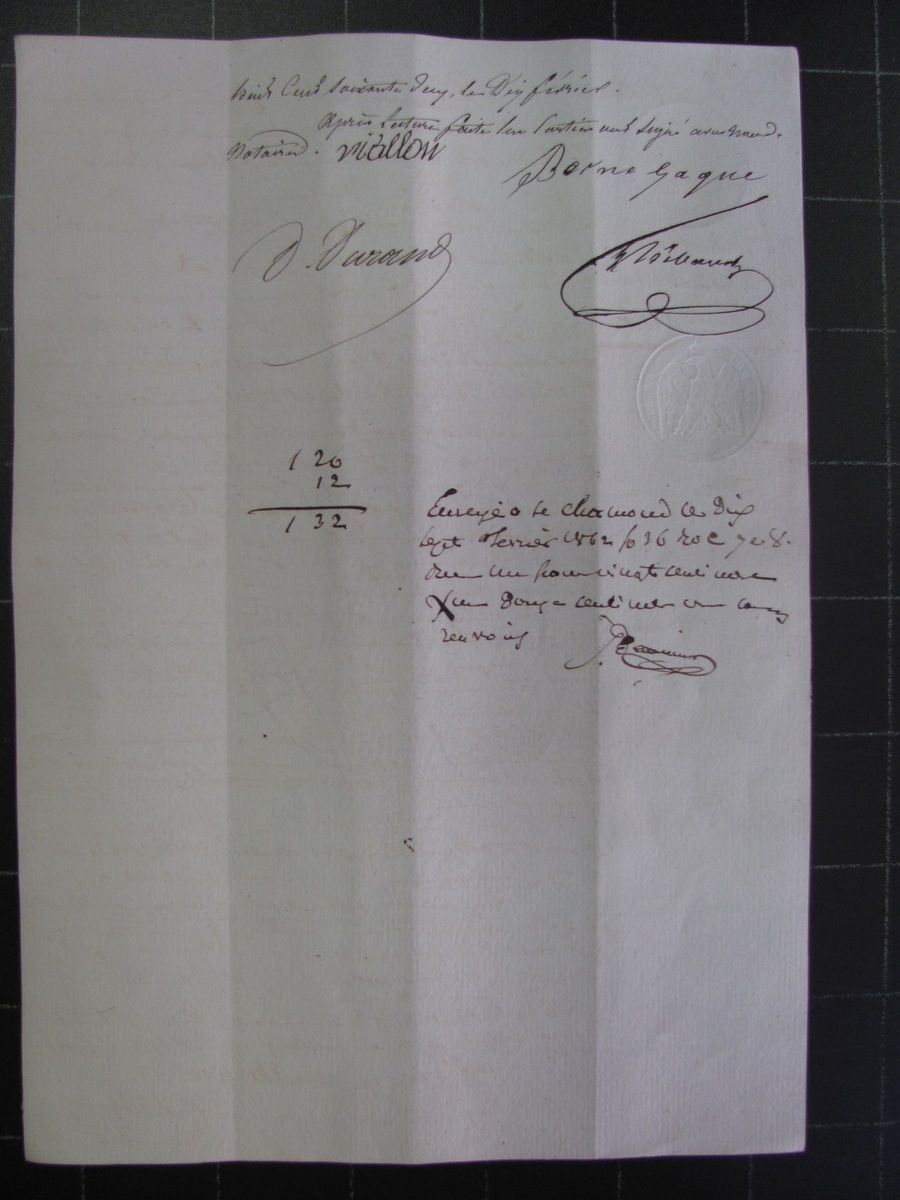 huit Cent soixante deux, le Dix février.
Après lecture faite les Parties ont signé avec nous.
Notaires. viallon
Borne Gaque
D. Durand
Thibaud
120
12
132
Enregé a St chamond le Dix
sept fevrier 1862 fo 36 Ro C 7 et 8.
Reçu un franc vingt centimes
Xme Douze centimes
renvois